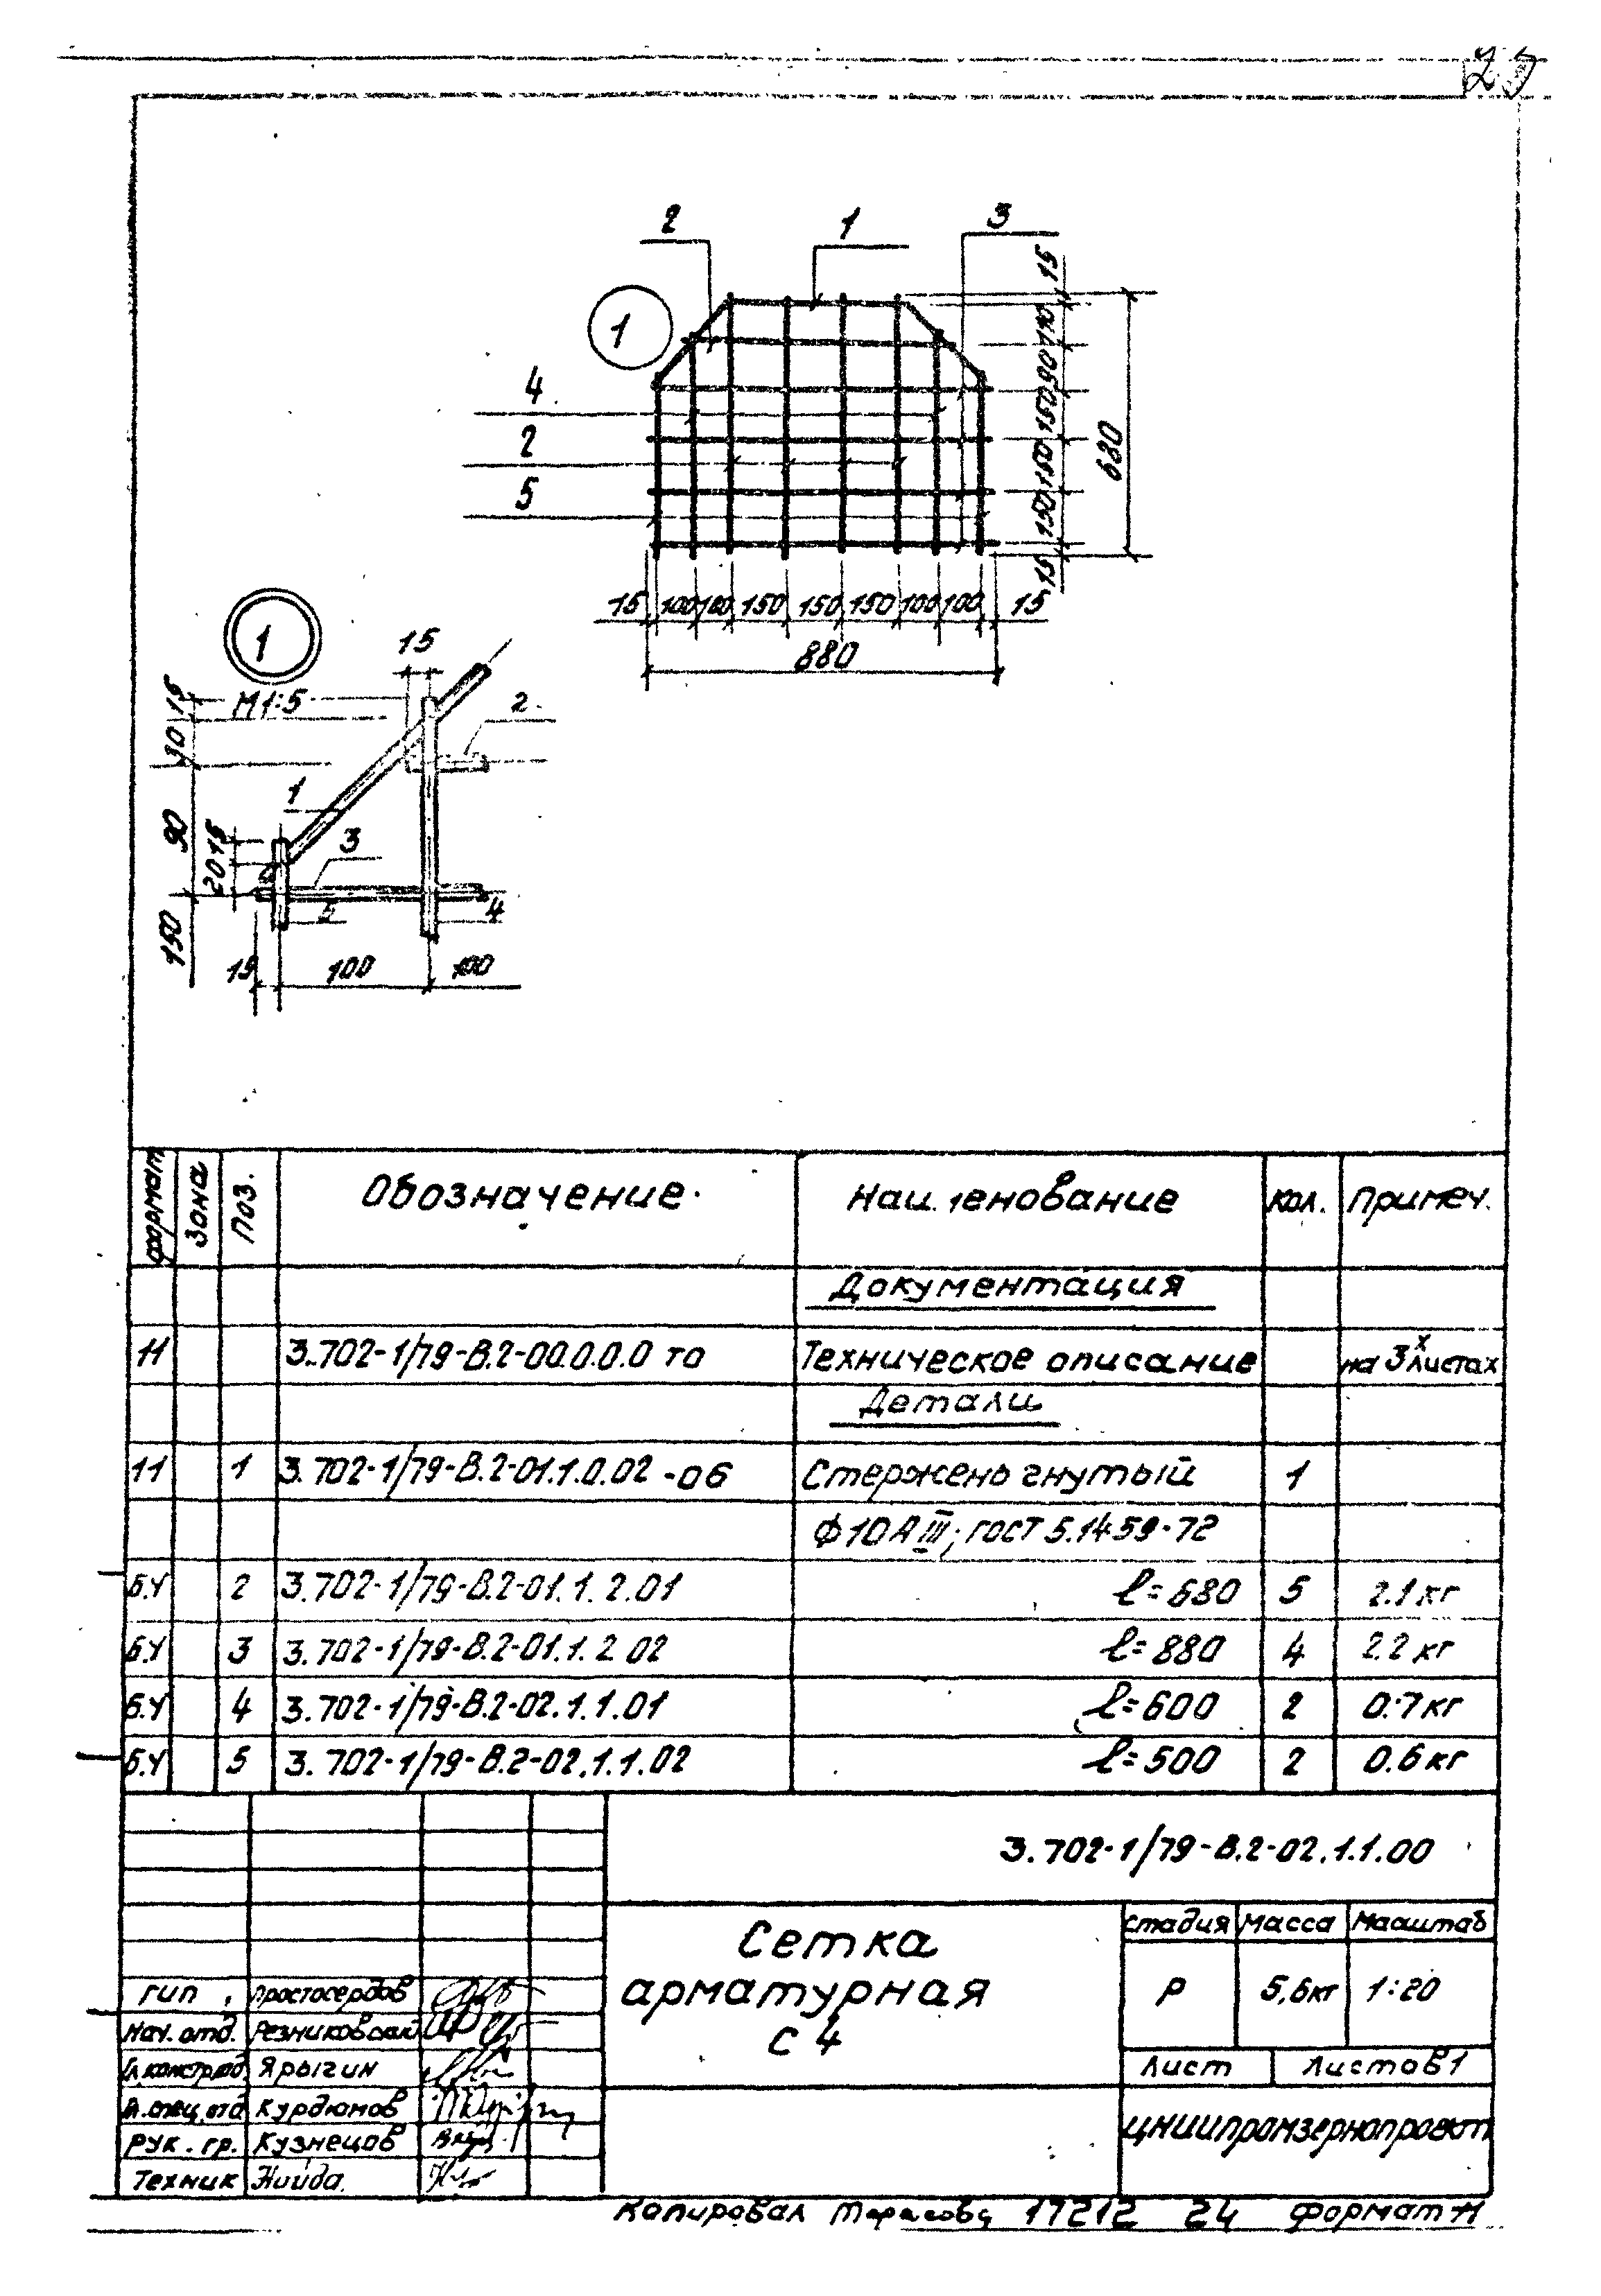 2 1 3
1
4
2
5
15 110 90 150 150 150 15
680
15 100 100 150 150 150 100 100 15
880
1
М1:5
15
15 30 90 150
20 15
2
1
3
5 4
15 100 100
Формат Зона Поз. Обозначение Наименование Кол. Примеч.
Документация
11 3.702-1/79-В.2-00.0.0.0 то Техническое описание на 3х листах
Детали
11 1 3.702-1/79-В.2-01.1.0.02 -06 Стержень гнутый 1
Ф10АIII; ГОСТ 5.1459-72
Б.Ч 2 3.702-1/79-В.2-01.1.2.01 ℓ=680 5 2.1 кг
Б.Ч 3 3.702-1/79-В.2-01.1.2 02 ℓ=880 4 2.2 кг
Б.Ч 4 3.702-1/79-В.2-02.1.1.01 ℓ=600 2 0.7 кг
Б.Ч 5 3.702-1/79-В.2-02.1.1.02 ℓ=500 2 0.6 кг
3.702-1/79-В.2-02.1.1.00
Сетка
арматурная
С 4
Стадия Масса Масштаб
Р 5,6кг 1:20
Лист Листов 1
ЦНИИпромзернопроект
ГИП Простосердов
Нач. отд. Резниковский
Гл.констр.отд. Ярыгин
Гл.спец.отд Курдюмов
Рук. гр. Кузнецов
Техник Найда
Копировал Тарасова 17212 24 Формат 11